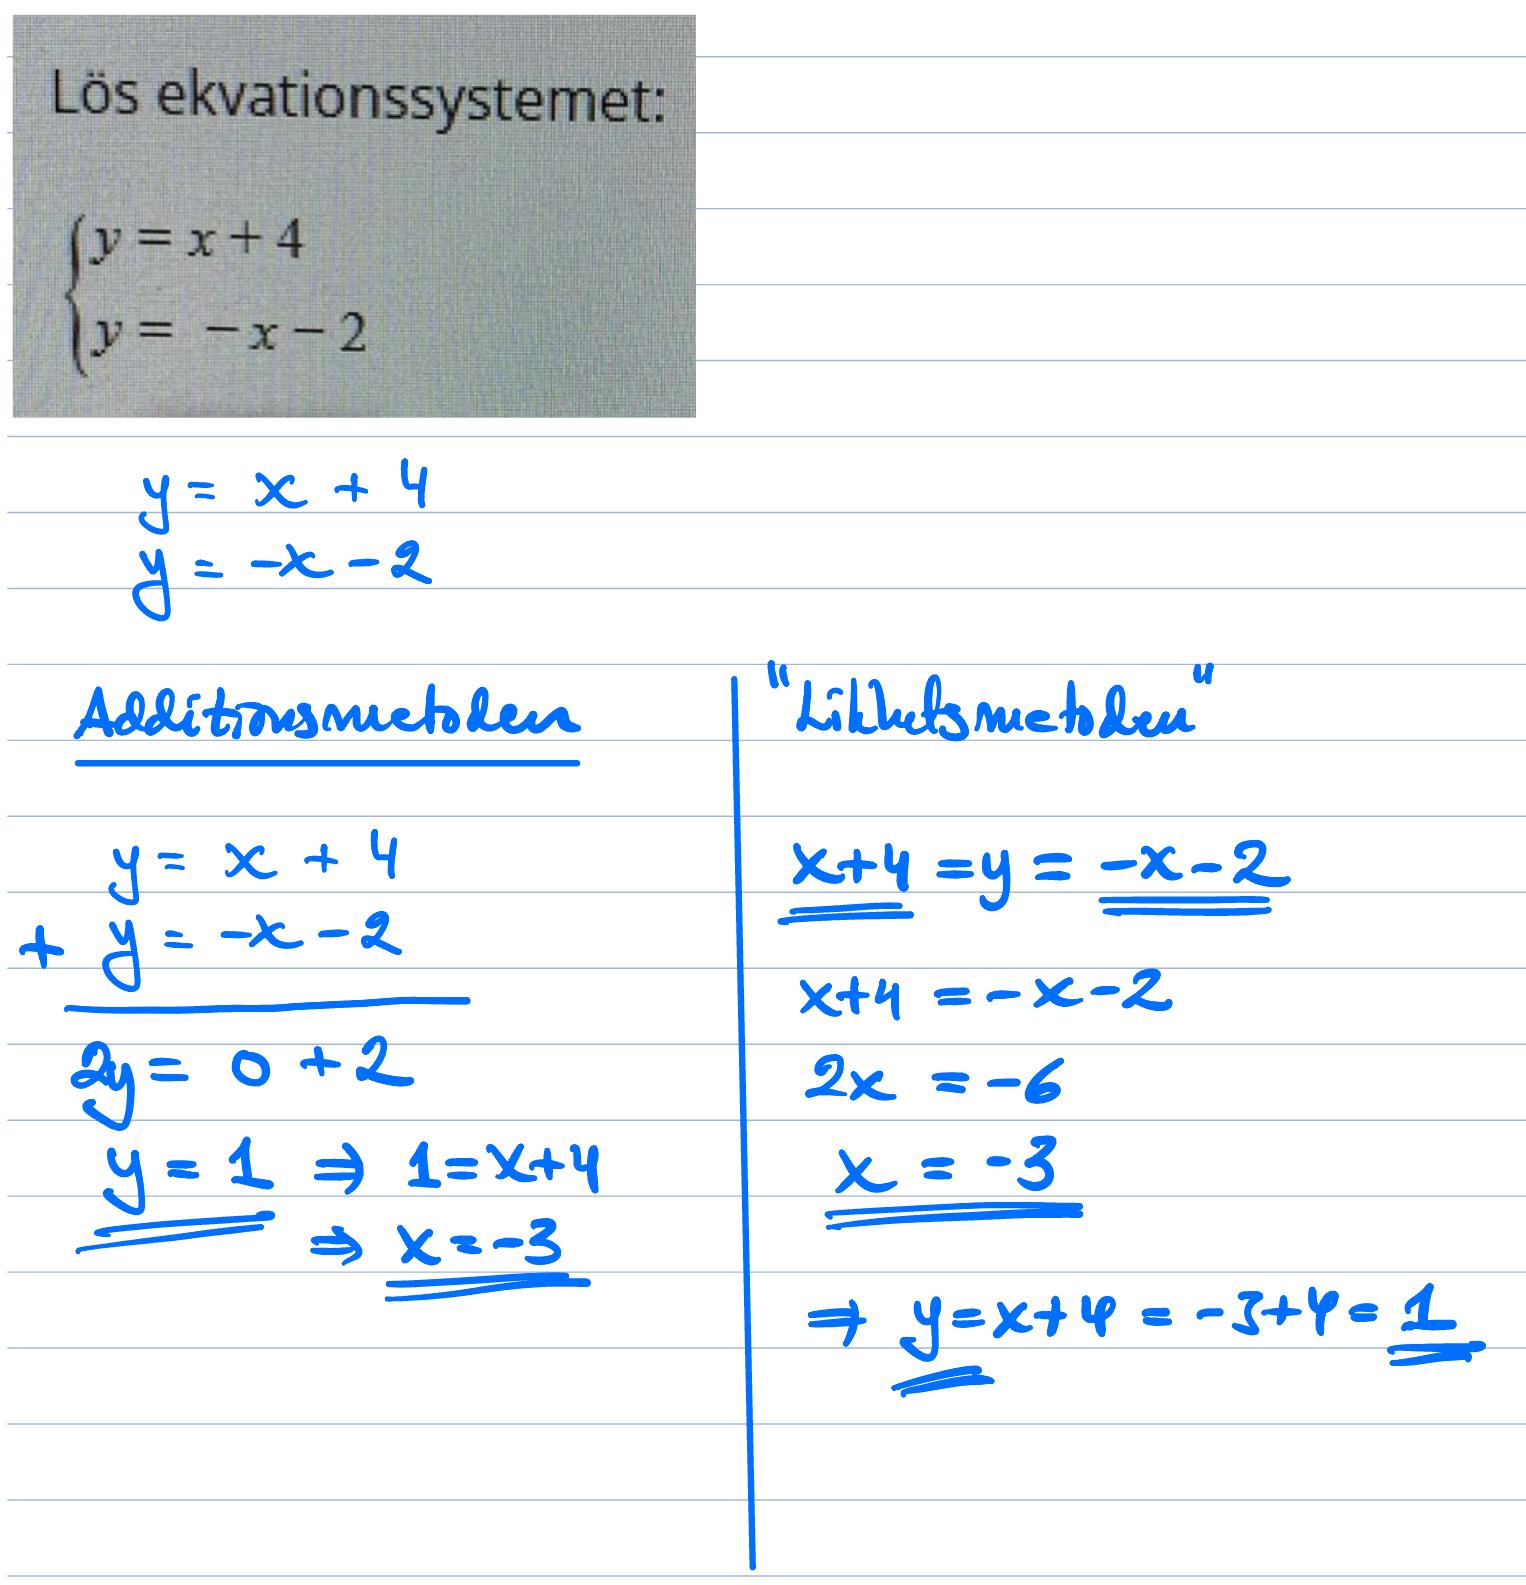 Lös ekvationssystemet:
y = x + 4
y = -x - 2
y = x + 4
y = -x - 2
Additionsmetoden
y = x + 4
+ y = -x - 2
2y = 0 + 2
y = 1 ⇒ 1 = x+4
⇒ x = -3
"Likhetsmetoden"
x+4 = y = -x-2
x+4 = -x-2
2x = -6
x = -3
⇒ y = x+4 = -3+4 = 1